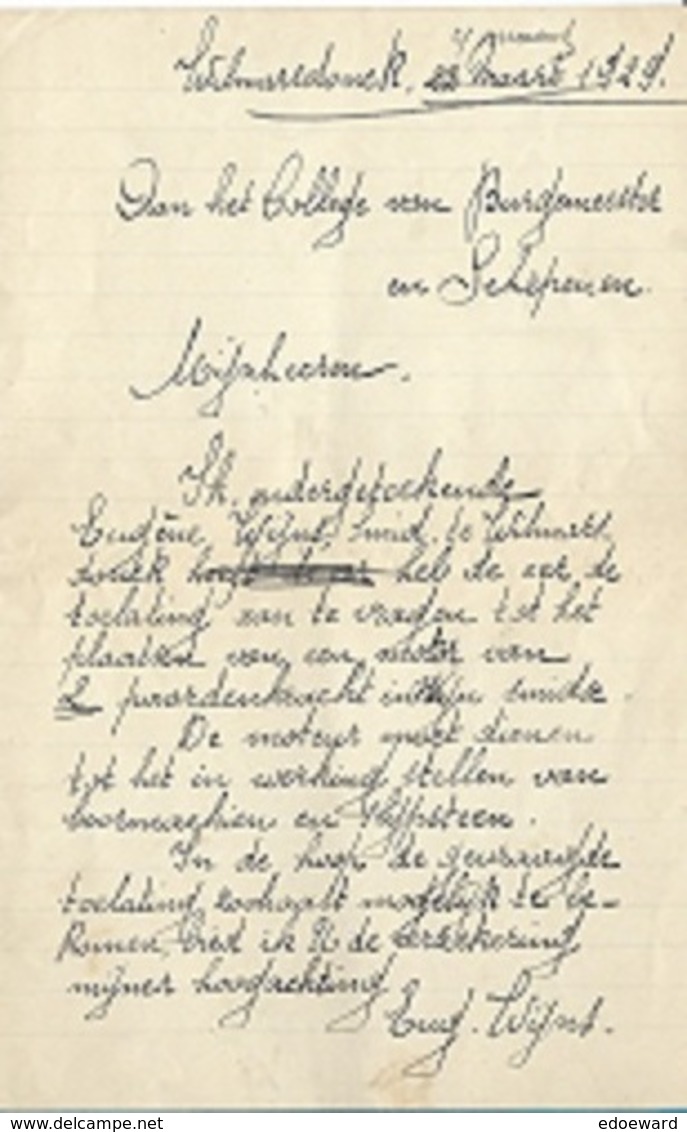 Wilmarsdonck, 22 Maart 1929.
Aan het College van Burgemeester
en Schepenen.
Mijnheeren.
Ik, ondergeteekende
Eugène Wijns, smid, te Wilmars-
donck heb de eer de
toelating aan te vragen tot het
plaatsen van een motor van
2 paardenkracht in mijn smidse.
De moteur moet dienen
tot het in werking stellen van
boormachien en slijpsteen.
In de hoop de gevraagde
toelating zoohaast mogelijk te be-
komen, bied ik U de verzekering
mijner hoogachting
Eug. Wijns.
www.delcampe.net
edoeward